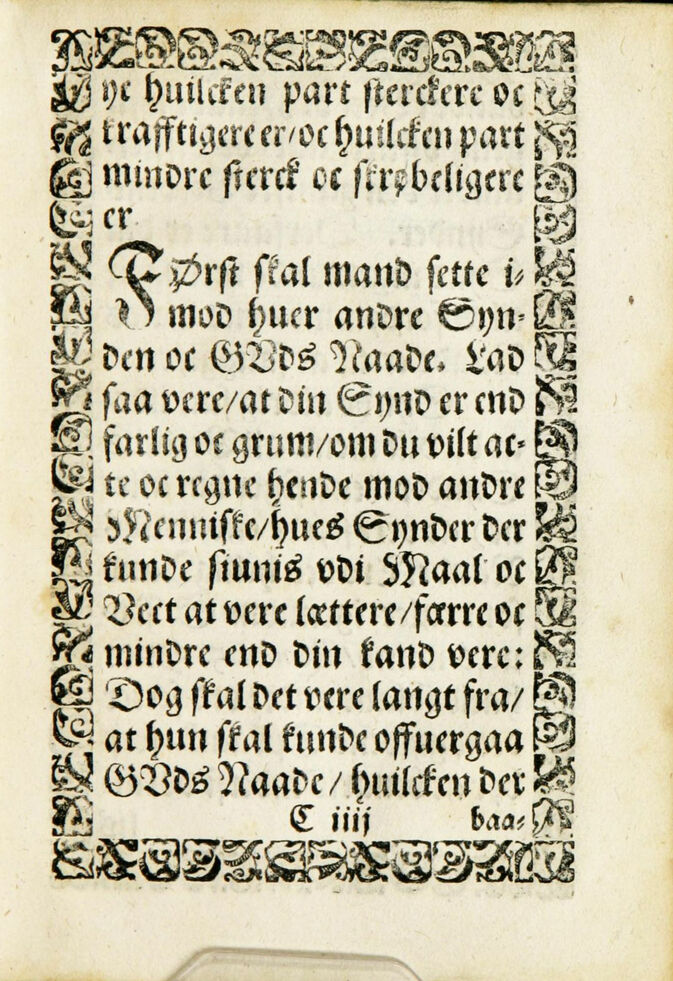 ye huilcken part sterckere oc
krafftigere er/oc huilcken part
mindre sterck oc skrøbeligere
er
FØrst skal mand sette i⸗
mod huer andre Syn⸗
den oc GVds Naade. Lad
saa vere/at din Synd er end
farlig oc grum/om du vilt ac⸗
te oc regne hende mod andre
Menniske/hues Synder der
kunde siunis vdi Maal oc
Vect at vere lættere/færre oc
mindre end din kand vere:
Dog skal det vere langt fra/
at hun skal kunde offuergaa
GVds Naade/ huilcken der
C iiij baa⸗